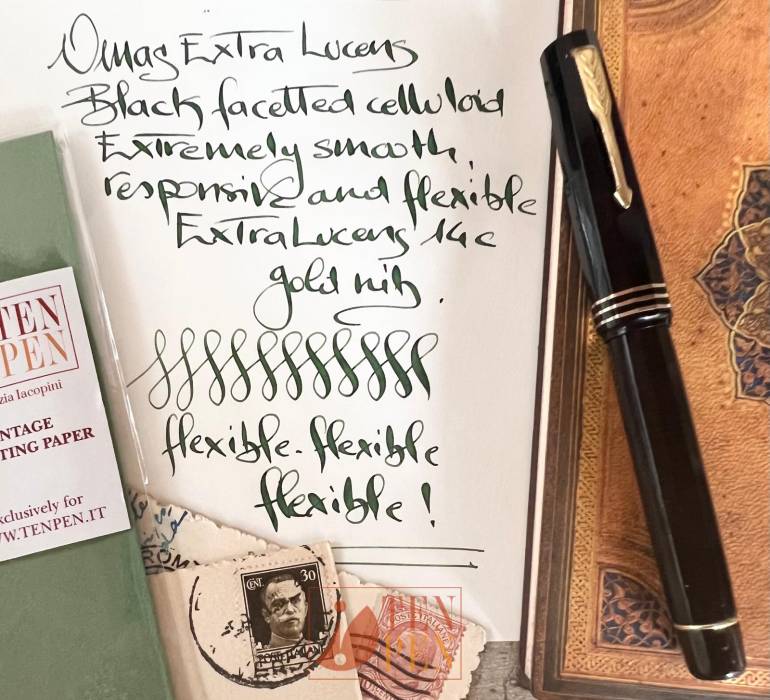 Omas Extra Lucens
Black facetted celluloid
Extremely smooth,
responsive and flexible
ExtraLucens 14c
gold nib.
flexible. flexible
flexible!
TEN
PEN
zia Iacopini
NTAGE
TING PAPER
xclusively for
WW.TENPEN.IT
ROM
CENT. 30
POSTE ITALIANE
TEN
PEN